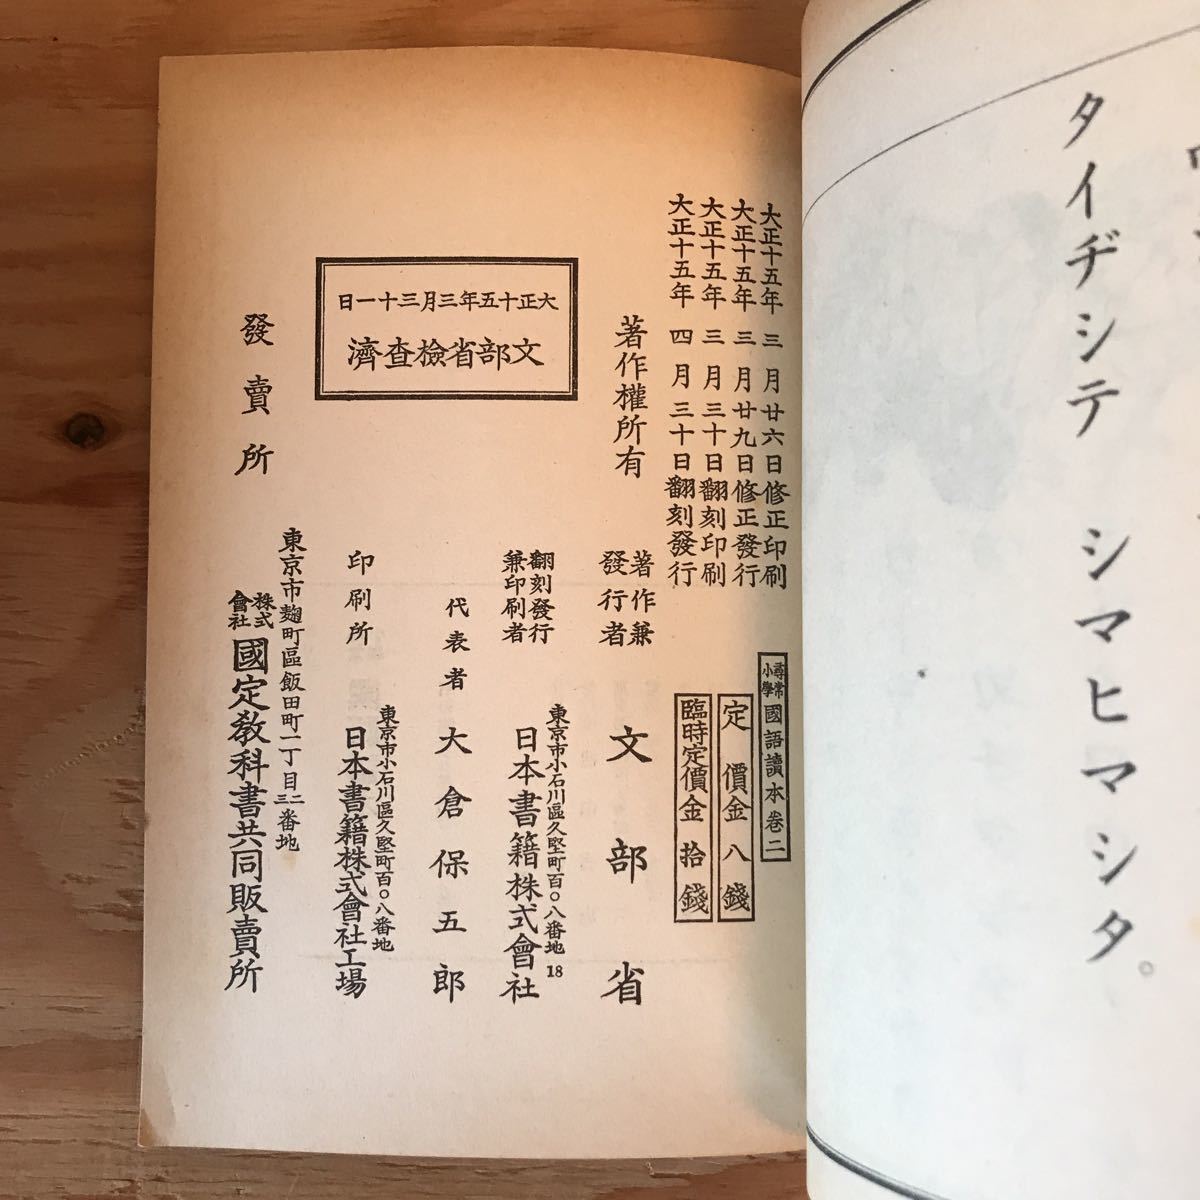 タイヂシテ シマヒマシタ。
大正十五年三月廿六日修正印刷
大正十五年三月廿九日修正發行
大正十五年三月三十日翻刻印刷
大正十五年四月三十日翻刻發行
尋常小學國語讀本卷二
定價金八錢
臨時定價金拾錢
著作權所有
著作兼
發行者
文部省
翻刻發行
兼印刷者
東京市小石川區久堅町百〇八番地
18
日本書籍株式會社
代表者 大倉保五郎
印刷所
東京市小石川區久堅町百〇八番地
日本書籍株式會社工場
日一十三月三年五十正大
濟査檢省部文
發賣所
東京市麴町區飯田町一丁目二三番地
株式會社 國定敎科書共同販賣所